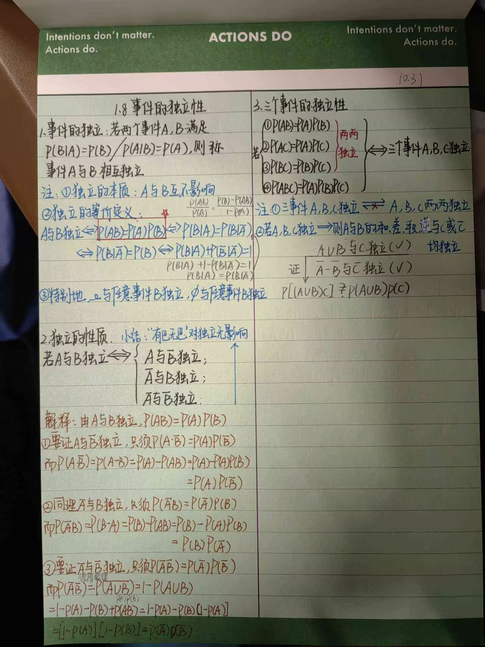 Intentions don't matter.
Actions do.
ACTIONS DO
Intentions don't matter.
Actions do.
10.31
1.8 事件的独立性
1.事件的独立:若两个事件A,B满足
P(B|A)=P(B)/P(A|B)=P(A),则称
事件A与B相互独立
注:①独立的本质:A与B互不影响
②独立的等价定义:
P(AB)/P(A)=P(B)-P(AB)/1-P(A)
A与B独立⇔P(AB)=P(A)P(B)⇔P(B|A)=P(B|A̅)
⇔P(B|A̅)=P(B)⇔P(B|A)+P(B̅|A̅)=1
P(B|A)+1-P(B|A̅)=1
P(B|A)=P(B|A̅)
③特别地,Ω与任意事件B独立,∅与任意事件B独立
2.独立的性质.小结:"有巴无巴"对独立无影响
若A与B独立⇔
A与B̅独立;
A̅与B独立;
A̅与B̅独立.
解释:由A与B独立,P(AB)=P(A)P(B)
①要证A与B̅独立,只须P(AB̅)=P(A)P(B̅)
而P(AB̅)=P(A-B)=P(A)-P(AB)=P(A)-P(A)P(B)
=P(A)P(B̅)
②同理A̅与B独立,只须P(A̅B)=P(A̅)P(B)
而P(A̅B)=P(B-A)=P(B)-P(AB)=P(B)-P(A)P(B)
=P(B)P(A̅)
③要证A̅与B̅独立,只须P(A̅B̅)=P(A̅)P(B̅)
而P(A̅B̅)=P(A∪B)=1-P(A∪B)
=1-P(A)-P(B)+P(AB)=1-P(A)-P(B)[1-P(A)]
=[1-P(A)][1-P(B)]=P(A̅)P(B̅)
3.三个事件的独立性
若
①P(AB)=P(A)P(B)
②P(AC)=P(A)P(C)
③P(BC)=P(B)P(C)
④P(ABC)=P(A)P(B)P(C)
两两
独立
⇔三个事件A,B,C独立
注:①三事件A,B,C独立⇄A,B,C两两独立
②若A,B,C独立→则A与B的和,差,积,逆与C或C̅
均独立
A∪B与C独立(√)
证
A-B与C̅独立(√)
P[(A∪B)C]=P(A∪B)P(C)